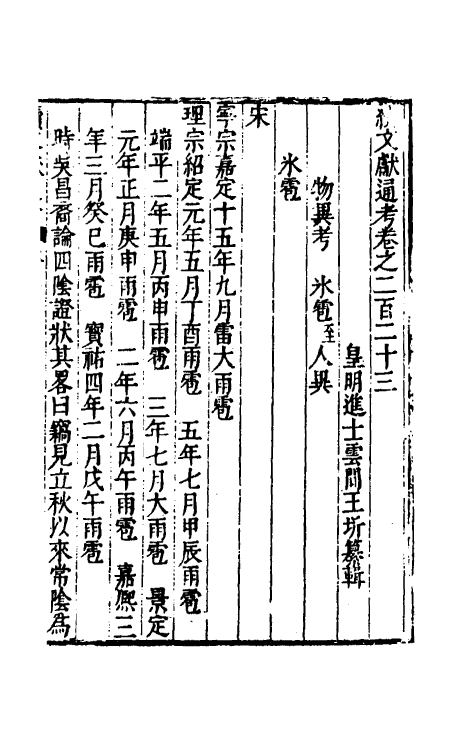 續文獻通考卷之二百二十三
皇明進士雲間王圻纂輯
物異考　氷雹至人異
氷雹
宋
寧宗嘉定十五年九月雷大雨雹
理宗紹定元年五月丁酉雨雹　五年七月甲辰雨雹
端平二年五月丙申雨雹　三年七月大雨雹　景定
元年正月庚申雨雹　二年六月丙午雨雹　嘉熈三
年三月癸巳雨雹　寶祐四年二月戊午雨雹
時吳昌裔論四陰證狀其畧曰竊見立秋以來常陰為